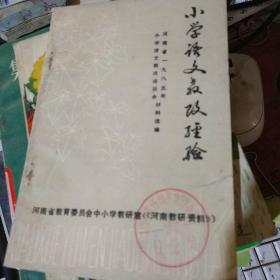 小学语文教改经验
河南省一九八五年
小学语文教改座谈会材料选编
河南省教育委员会中小学教研室(《河南教研资料》)